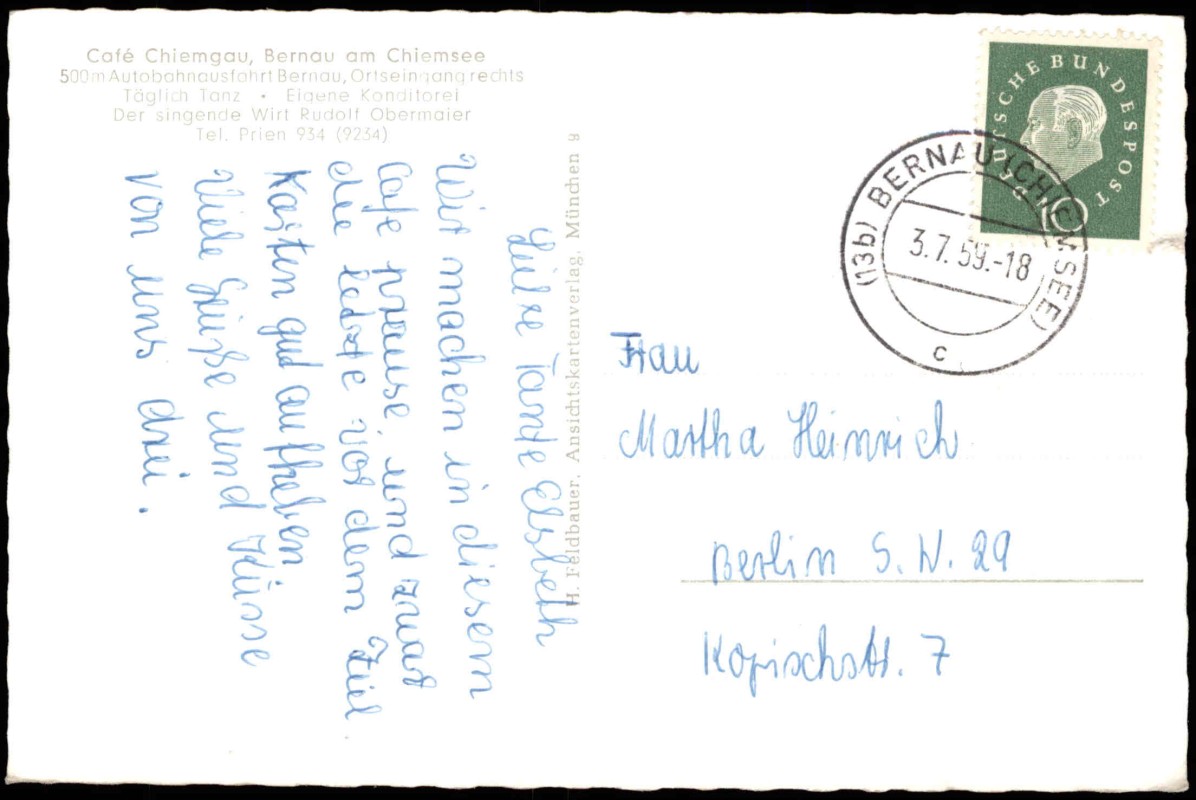 Café Chiemgau, Bernau am Chiemsee
500m Autobahnausfahrt Bernau, Ortseingang rechts
Täglich Tanz • Eigene Konditorei
Der singende Wirt Rudolf Obermaier
Tel. Prien 934 (9234)
Liebe Tante Elsbeth
Wir machen in diesem
Cafe prause, und zwar
die letzte vor dem Ziel.
Karten gut aufheben
Viele Grüße und Küsse
von uns drei.
H. Feldbauer, Ansichtskartenverlag, München 9
DEUTSCHE BUNDESPOST
10
(13b) BERNAU (CHIEMSEE)
3.7.59.-18
c
Frau
Martha Heinrich
Berlin S.W. 29
Kopischstr. 7